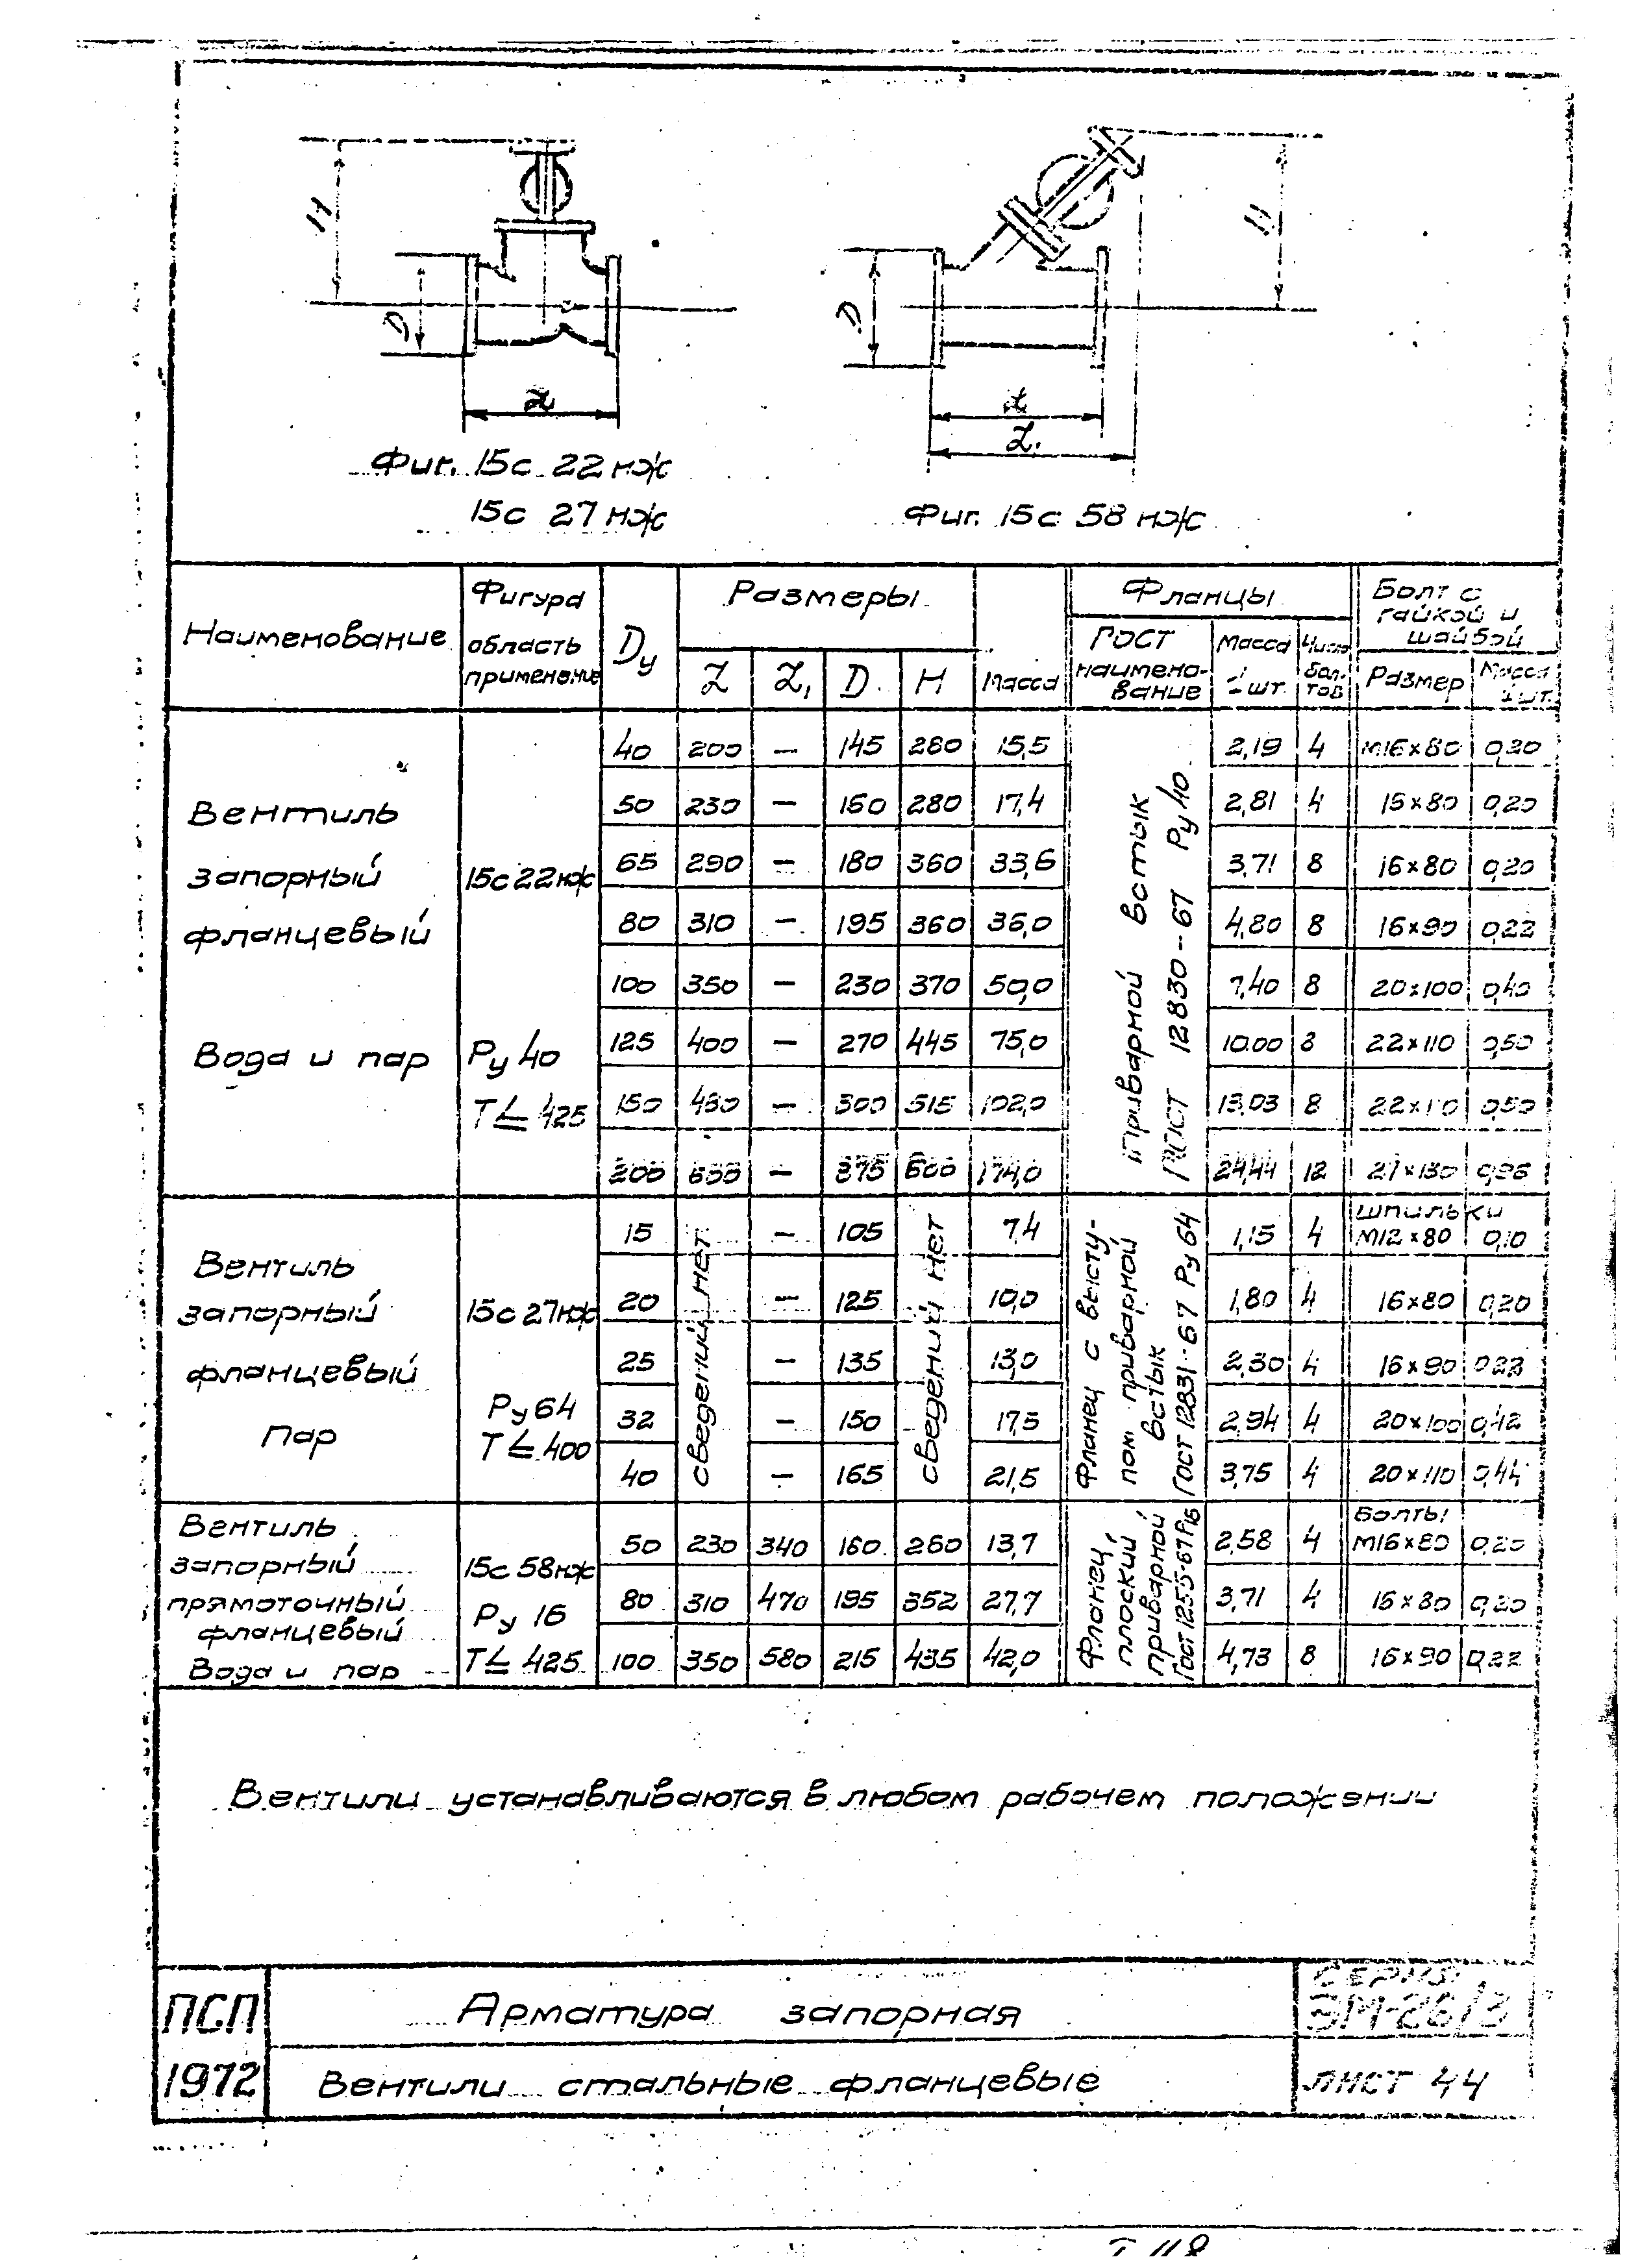 H
D
L
Фиг. 15с 22нж
15с 27нж
H
D
L
L1
Фиг. 15с 58нж
Наименование
Фигура
область
применение
Dу
Размеры
L
L1
D
H
Масса
Фланцы
ГОСТ
наимено-
вание
Масса
1 шт.
Число
бол-
тов
Болт с
гайкой и
шайбой
Размер
Масса
1 шт.
Вентиль
запорный
фланцевый
Вода и пар
15с22нж
Ру 40
Т ≤ 425
Приварной встык
ГОСТ 12830-67 Ру 40
40 200 — 145 280 15,5 2,19 4 М16×80 0,20
50 230 — 160 280 17,4 2,81 4 16×80 0,20
65 290 — 180 360 33,6 3,71 8 16×80 0,20
80 310 — 195 360 36,0 4,80 8 16×90 0,22
100 350 — 230 370 50,0 7,40 8 20×100 0,40
125 400 — 270 445 75,0 10.00 8 22×110 0,50
150 480 — 300 515 102,0 13,03 8 22×110 0,50
200 600 — 375 600 174,0 24,44 12 27×130 0,96
Вентиль
запорный
фланцевый
Пар
15с27нж
Ру 64
Т ≤ 400
сведений нет
сведений нет
Фланец с высту-
пом приварной
встык
ГОСТ 12831-67 Ру 64
Шпильки
15 — 105 7,4 1,15 4 М12×80 0,10
20 — 125 10,0 1,80 4 16×80 0,20
25 — 135 13,0 2,30 4 16×90 0,22
32 — 150 17,5 2,94 4 20×100 0,42
40 — 165 21,5 3,75 4 20×110 0,44
Вентиль
запорный
прямоточный
фланцевый
Вода и пар
15с 58нж
Ру 16
Т ≤ 425
Фланец
плоский
приварной
ГОСТ 1255-67 Р16
Болты
50 230 340 160 260 13,7 2,58 4 М16×80 0,20
80 310 470 195 352 27,7 3,71 4 16×80 0,20
100 350 580 215 435 42,0 4,73 8 16×90 0,22
Вентили устанавливаются в любом рабочем положении
ПСП
1972
Арматура запорная
Вентили стальные фланцевые
СЕРИЯ
ЭМ-26/3
ЛИСТ 44